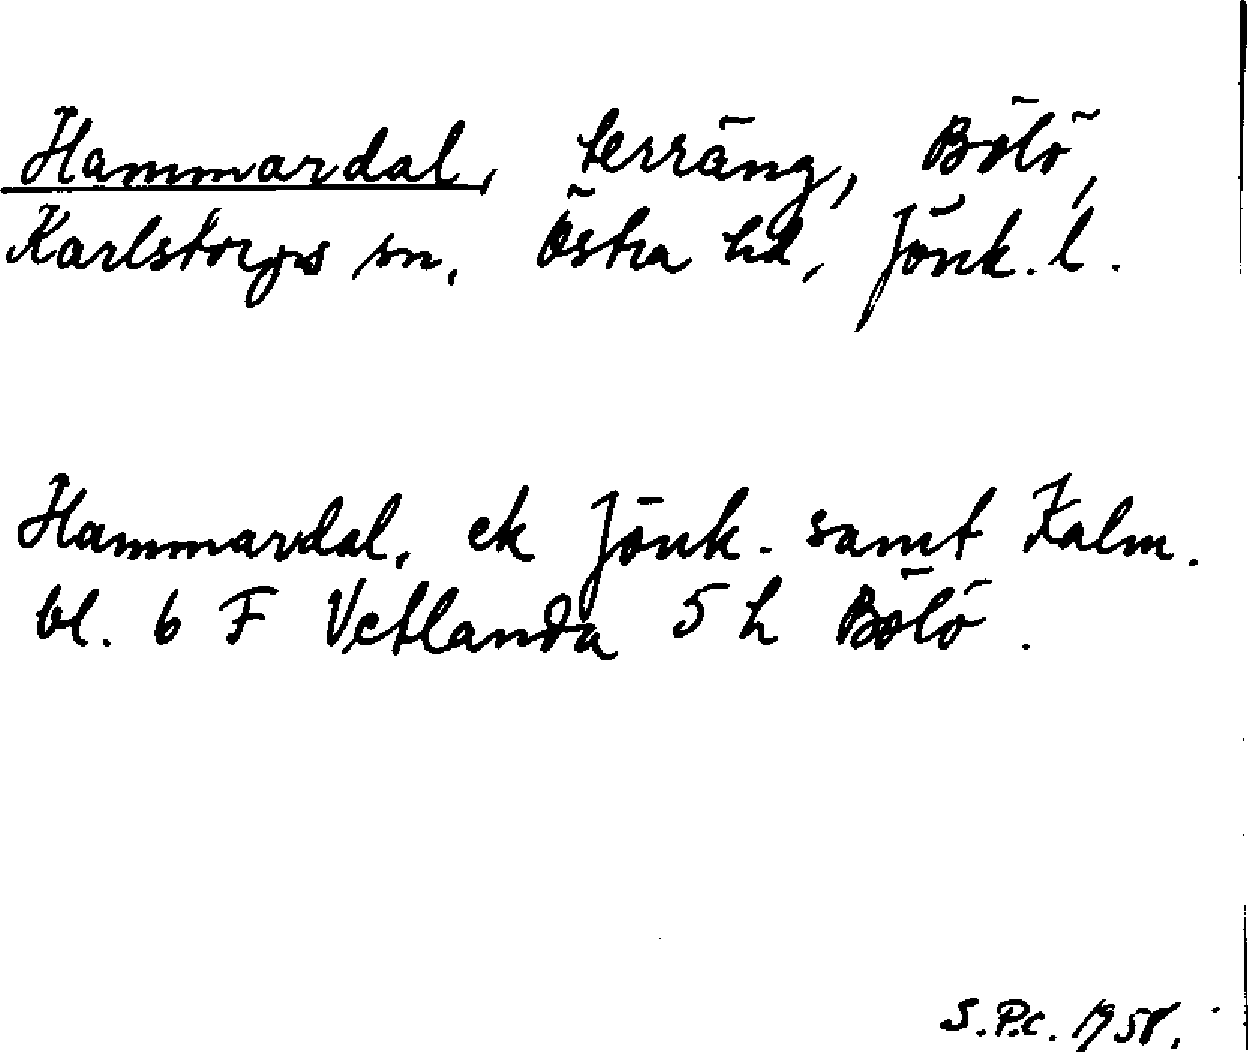 Hammardal, terräng, Bölö,
Karlstorps sn, Östra hd, Jönk. l.
Hammardal, ek Jönk. samt Kalm.
bl. 6 F Vetlanda 5 h Bölö.
S.P.C. 1958.